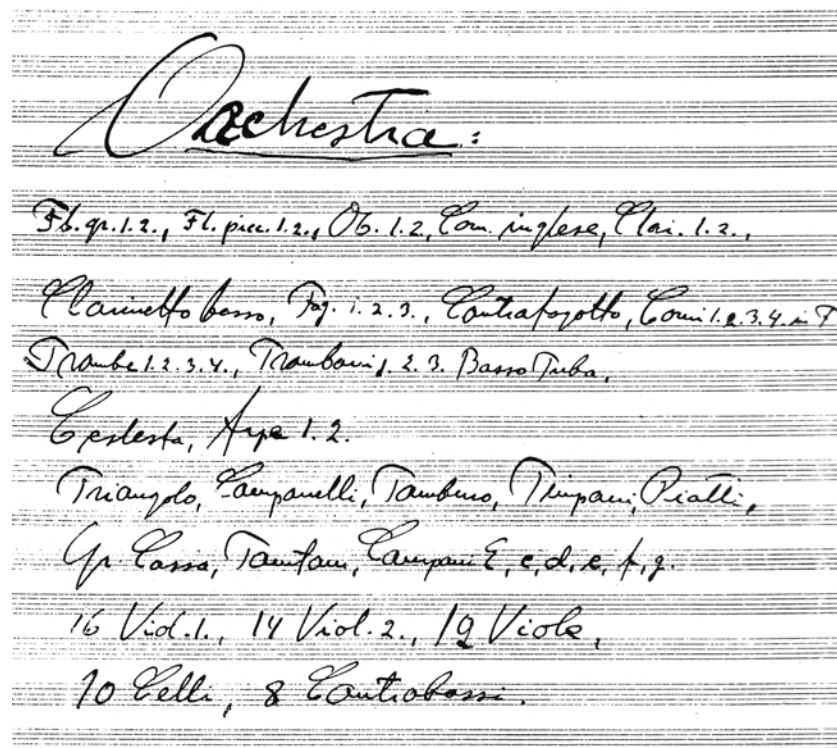 Orchestra:
Fl. gr. 1. 2., Fl. picc. 1. 2., Ob. 1. 2, Corn. inglese, Clar. 1. 2.,
Clarinetto basso, Fag. 1. 2. 3., Contrafagotto, Corni 1. 2. 3. 4. in F
Trombe 1. 2. 3. 4., Tromboni 1. 2. 3. Basso Tuba,
Celesta, Arpe 1. 2.
Triangolo, Campanelli, Tamburo, Timpani, Piatti,
Gr. Cassa, Tamtam, Campani E, c, d, e, f, g.
16 Viol. 1., 14 Viol. 2., 12 Viole,
10 Celli, 8 Contrabassi.